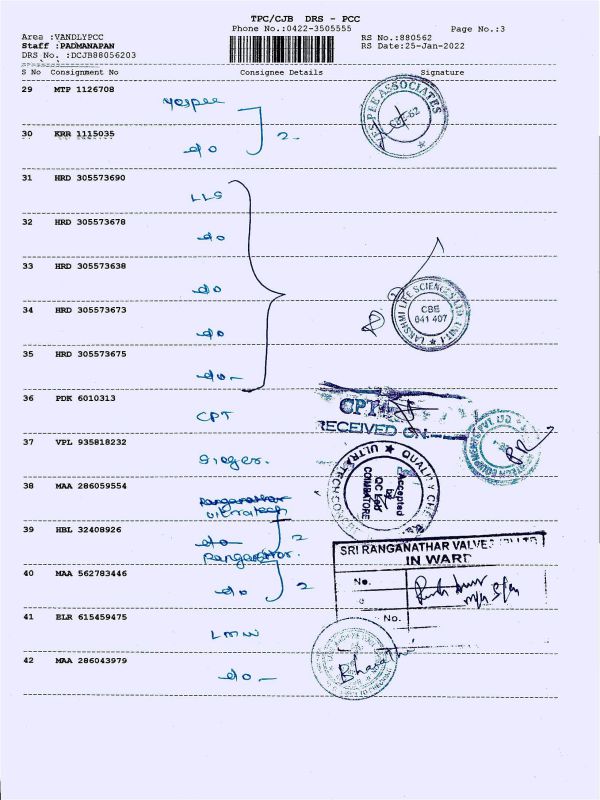 TPC/CJB DRS - PCC
Phone No.:0422-3505555
Page No.:3
Area :VANDLYPCC
RS No.:880562
Staff :PADMANAPAN
RS Date:25-Jan-2022
DRS No. :DCJB88056203
S No Consignment No Consignee Details Signature
29 MTP 1126708
yespee
PEE ASSOCIATES
CBE-62
30 KRR 1115035
do
2
31 HRD 305573690
LLS
32 HRD 305573678
do
33 HRD 305573638
do
LAKSHMI LIFE SCIENCES LTD UNIT-I
CBE
641 407
34 HRD 305573673
do
35 HRD 305573675
do
36 PDK 6010313
CPT
CPT
RECEIVED ON
37 VPL 935818232
Sieger.
38 MAA 286059554
ultratech
ULTRATECH
Accepted
by
QC Lab
COIMBATORE
39 HBL 32408926
do
2
Ranganathar.
SRI RANGANATHAR VALVES
IN WARD
40 MAA 562783446
do
2
No.
No.
41 BLR 615459475
LMW
42 MAA 286043979
do
Bharathi